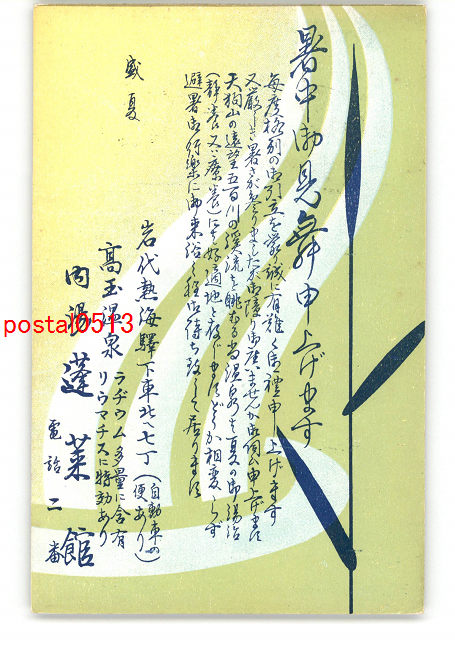 暑中御見舞申上げます
毎度格別の御引立を蒙り誠に有難く御禮申し上げます
又厳しき暑さが参りましたが御障り御座いませんか御伺ひ申上げます
天狗山の遠望五百川の渓流を眺むる当温泉は夏の御湯治
(静養又は療養)には好適地と存じます
避暑御行楽に御来浴の程御待ち致して居ります
盛夏
岩代熱海驛下車北へ七丁(自動車の便あり)
高玉温泉 ラヂウム多量に含有
リウマチスに特効あり
内湯 蓬萊館
電話二番
postal0513